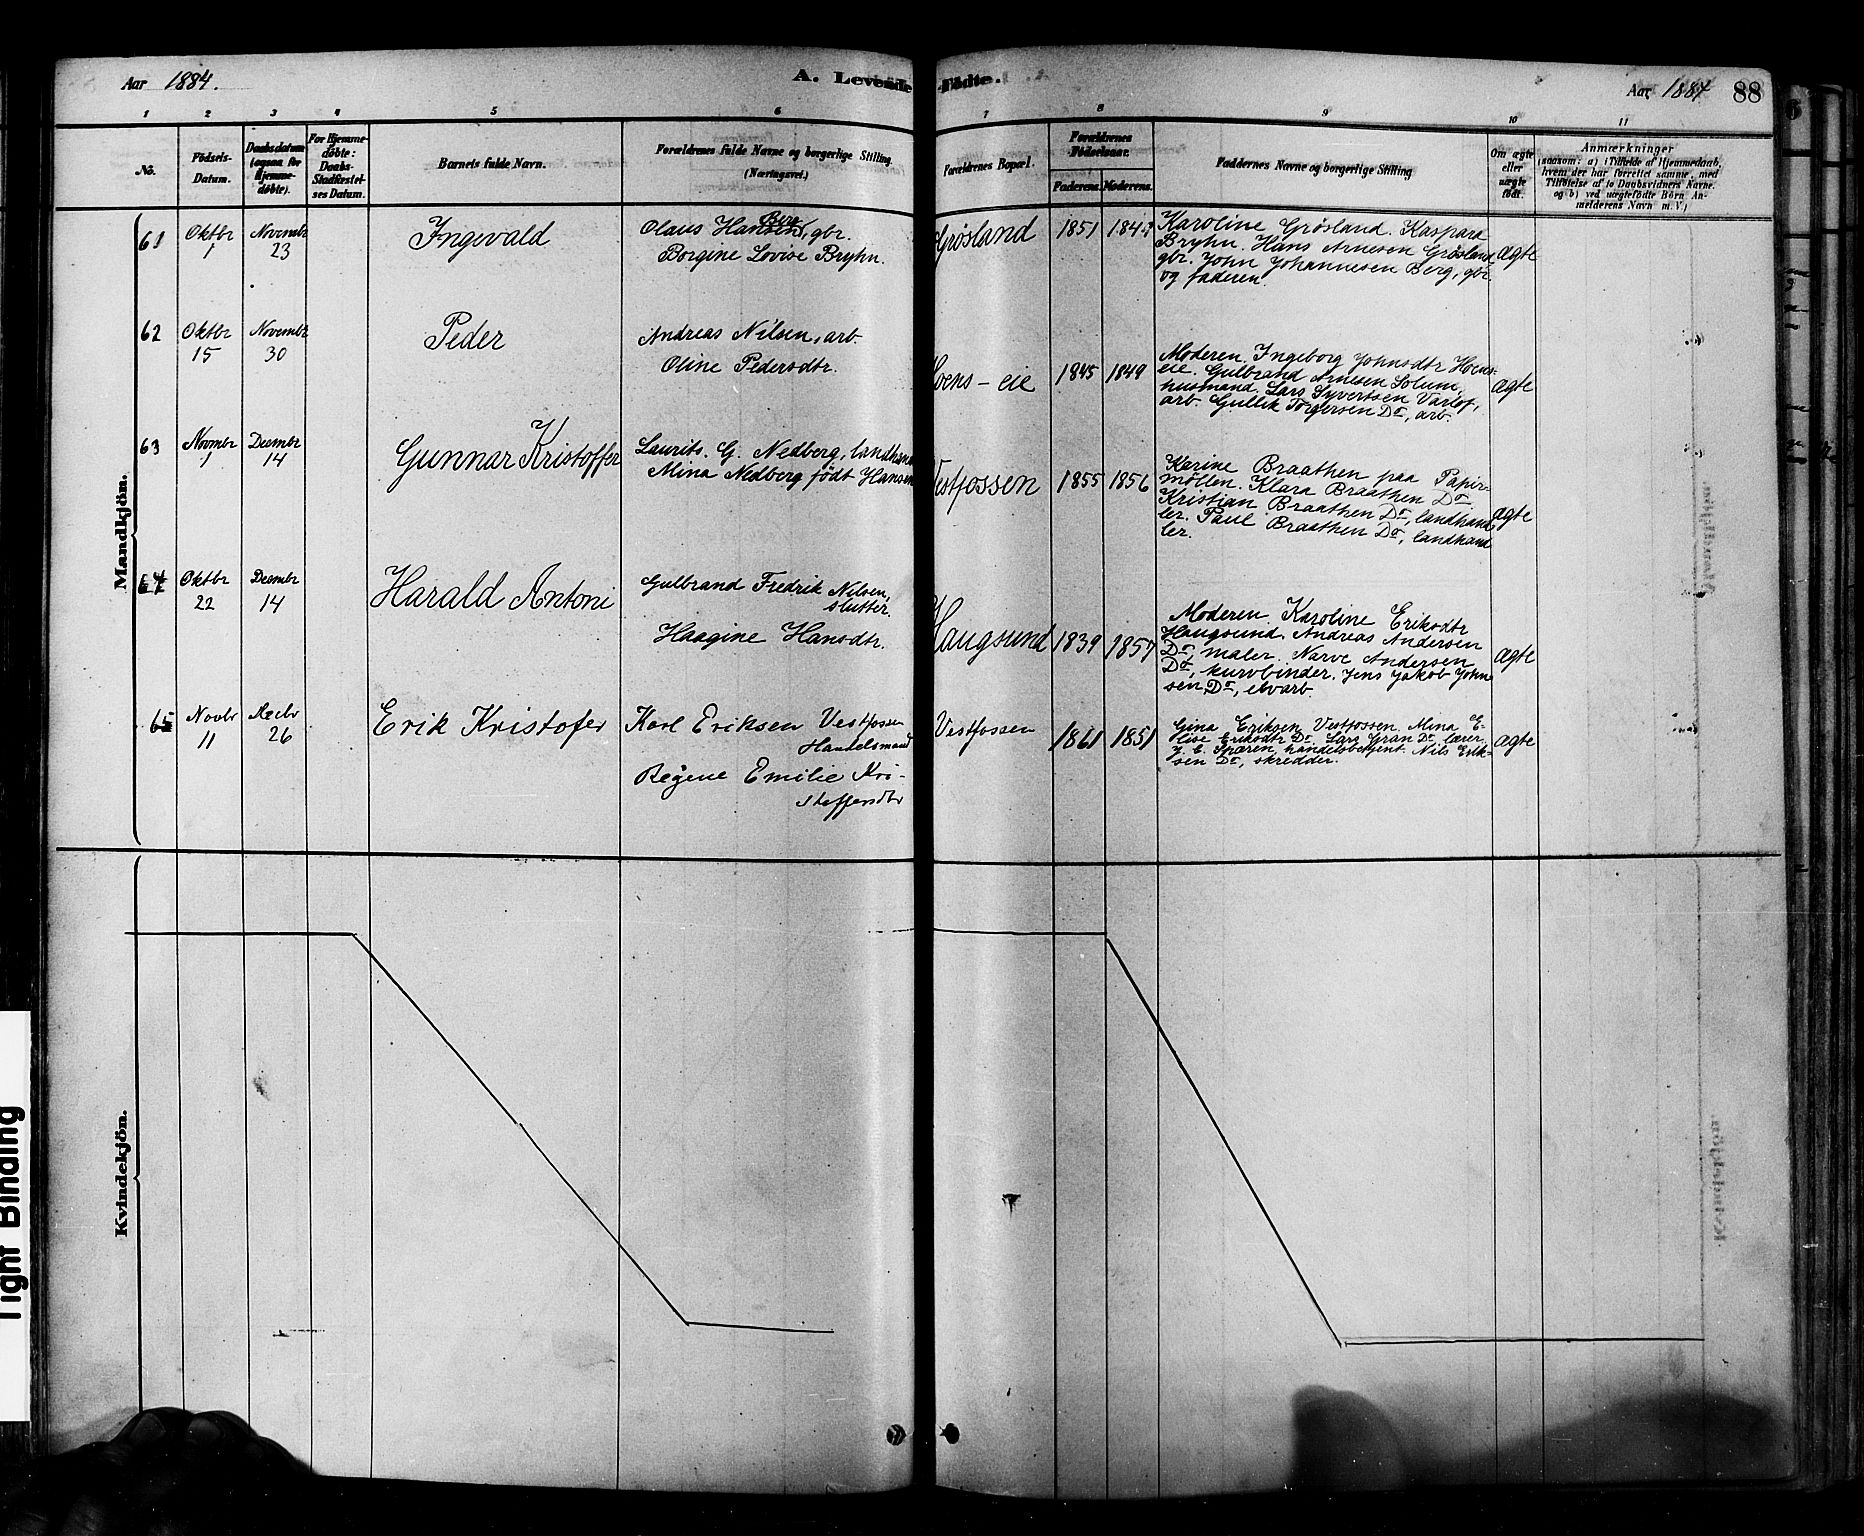 Aar 1884.
A. Levende
Födte.
Aar 1884
88
1 2 3 4 5 6 7 8 9 10 11
No.
Födsels-
Datum.
Daabsdatum
(ogsaa for
Hjemme-
døbte).
For Hjemme-
døbte:
Daabs-
Stadfæstel-
ses Datum.
Barnets fulde Navn.
Forældrenes fulde Navne og borgerlige Stilling
(Næringsvei.)
Forældrenes Bopæl.
Forældrenes
Födselsaar.
Faderens. Moderens.
Faddernes Navne og borgerlige Stilling
Om ægte
eller
uægte
født.
Anmærkninger
(saasom: a) i Tilfælde af Hjemmedaab,
hvem der har forrettet samme, med
Tilføielse af to Daabsvidners Navne.
og b) ved uægtefødte Börn An-
melderens Navn m. V.)
Mandkjön.
61
Oktbr
1
Novembr
23
Ingevald
Olaus Hansen Berg, gbr.
Borgine Lovise Bryhn.
Grøsland
1851
Karoline Grøsland. Kaspara
Bryhn. Hans Arnesen Grøsland,
gbr. John Johannesen Berg, gbr.
og faderen.
Ægte
62
Oktbr
15
Novembr
30
Peder
Andreas Nilsen, arb.
Oline Pedersdtr.
Hoens-eie
1845 1849
Moderen. Ingeborg Johnsdtr Hoens-
eie. Gulbrand Arnesen Solum,
husmand. Lars Syvertsen Varlof,
arb. Gullik Torgersen Do, arb.
Ægte
63
Novmbr
1
Decmbr
14
Gunnar Kristoffer
Laurits. G. Nedberg, landhand
Mina Nedberg født Hansen
Vestfossen
1855 1856
Karine Braathen paa Papir-
møllen. Klara Braathen Do
Kristian Braathen Do, landhand
ler. Paul Braathen Do, landhand
ler.
Ægte
64
Oktbr
22
Decmbr
14
Harald Antoni
Gulbrand Fredrik Nilsen,
slutter.
Haagine Hansdtr.
Haugsund
1839 1857
Moderen. Karoline Eriksdtr
Haugsund. Andreas Andersen
Do, maler. Narve Andersen
Do, kurvbinder. Jens Jakob John
sen Do, elvarb
Ægte
65
Novbr
11
Decbr
26
Erik Kristofer
Karl Eriksen Vestfossen
Handelsmand
Regene Emilie Kri-
stoffersdtr
Vestfossen
1861 1851
Gina Eriksen, Vestfossen. Mina E-
lise Eriksdtr Do. Lars Gran Do, lærer.
J. E. Spæren, handelsbetjent. Nils Erik-
sen Do, skredder.
Ægte
Kvindekjön.
Tight Binding